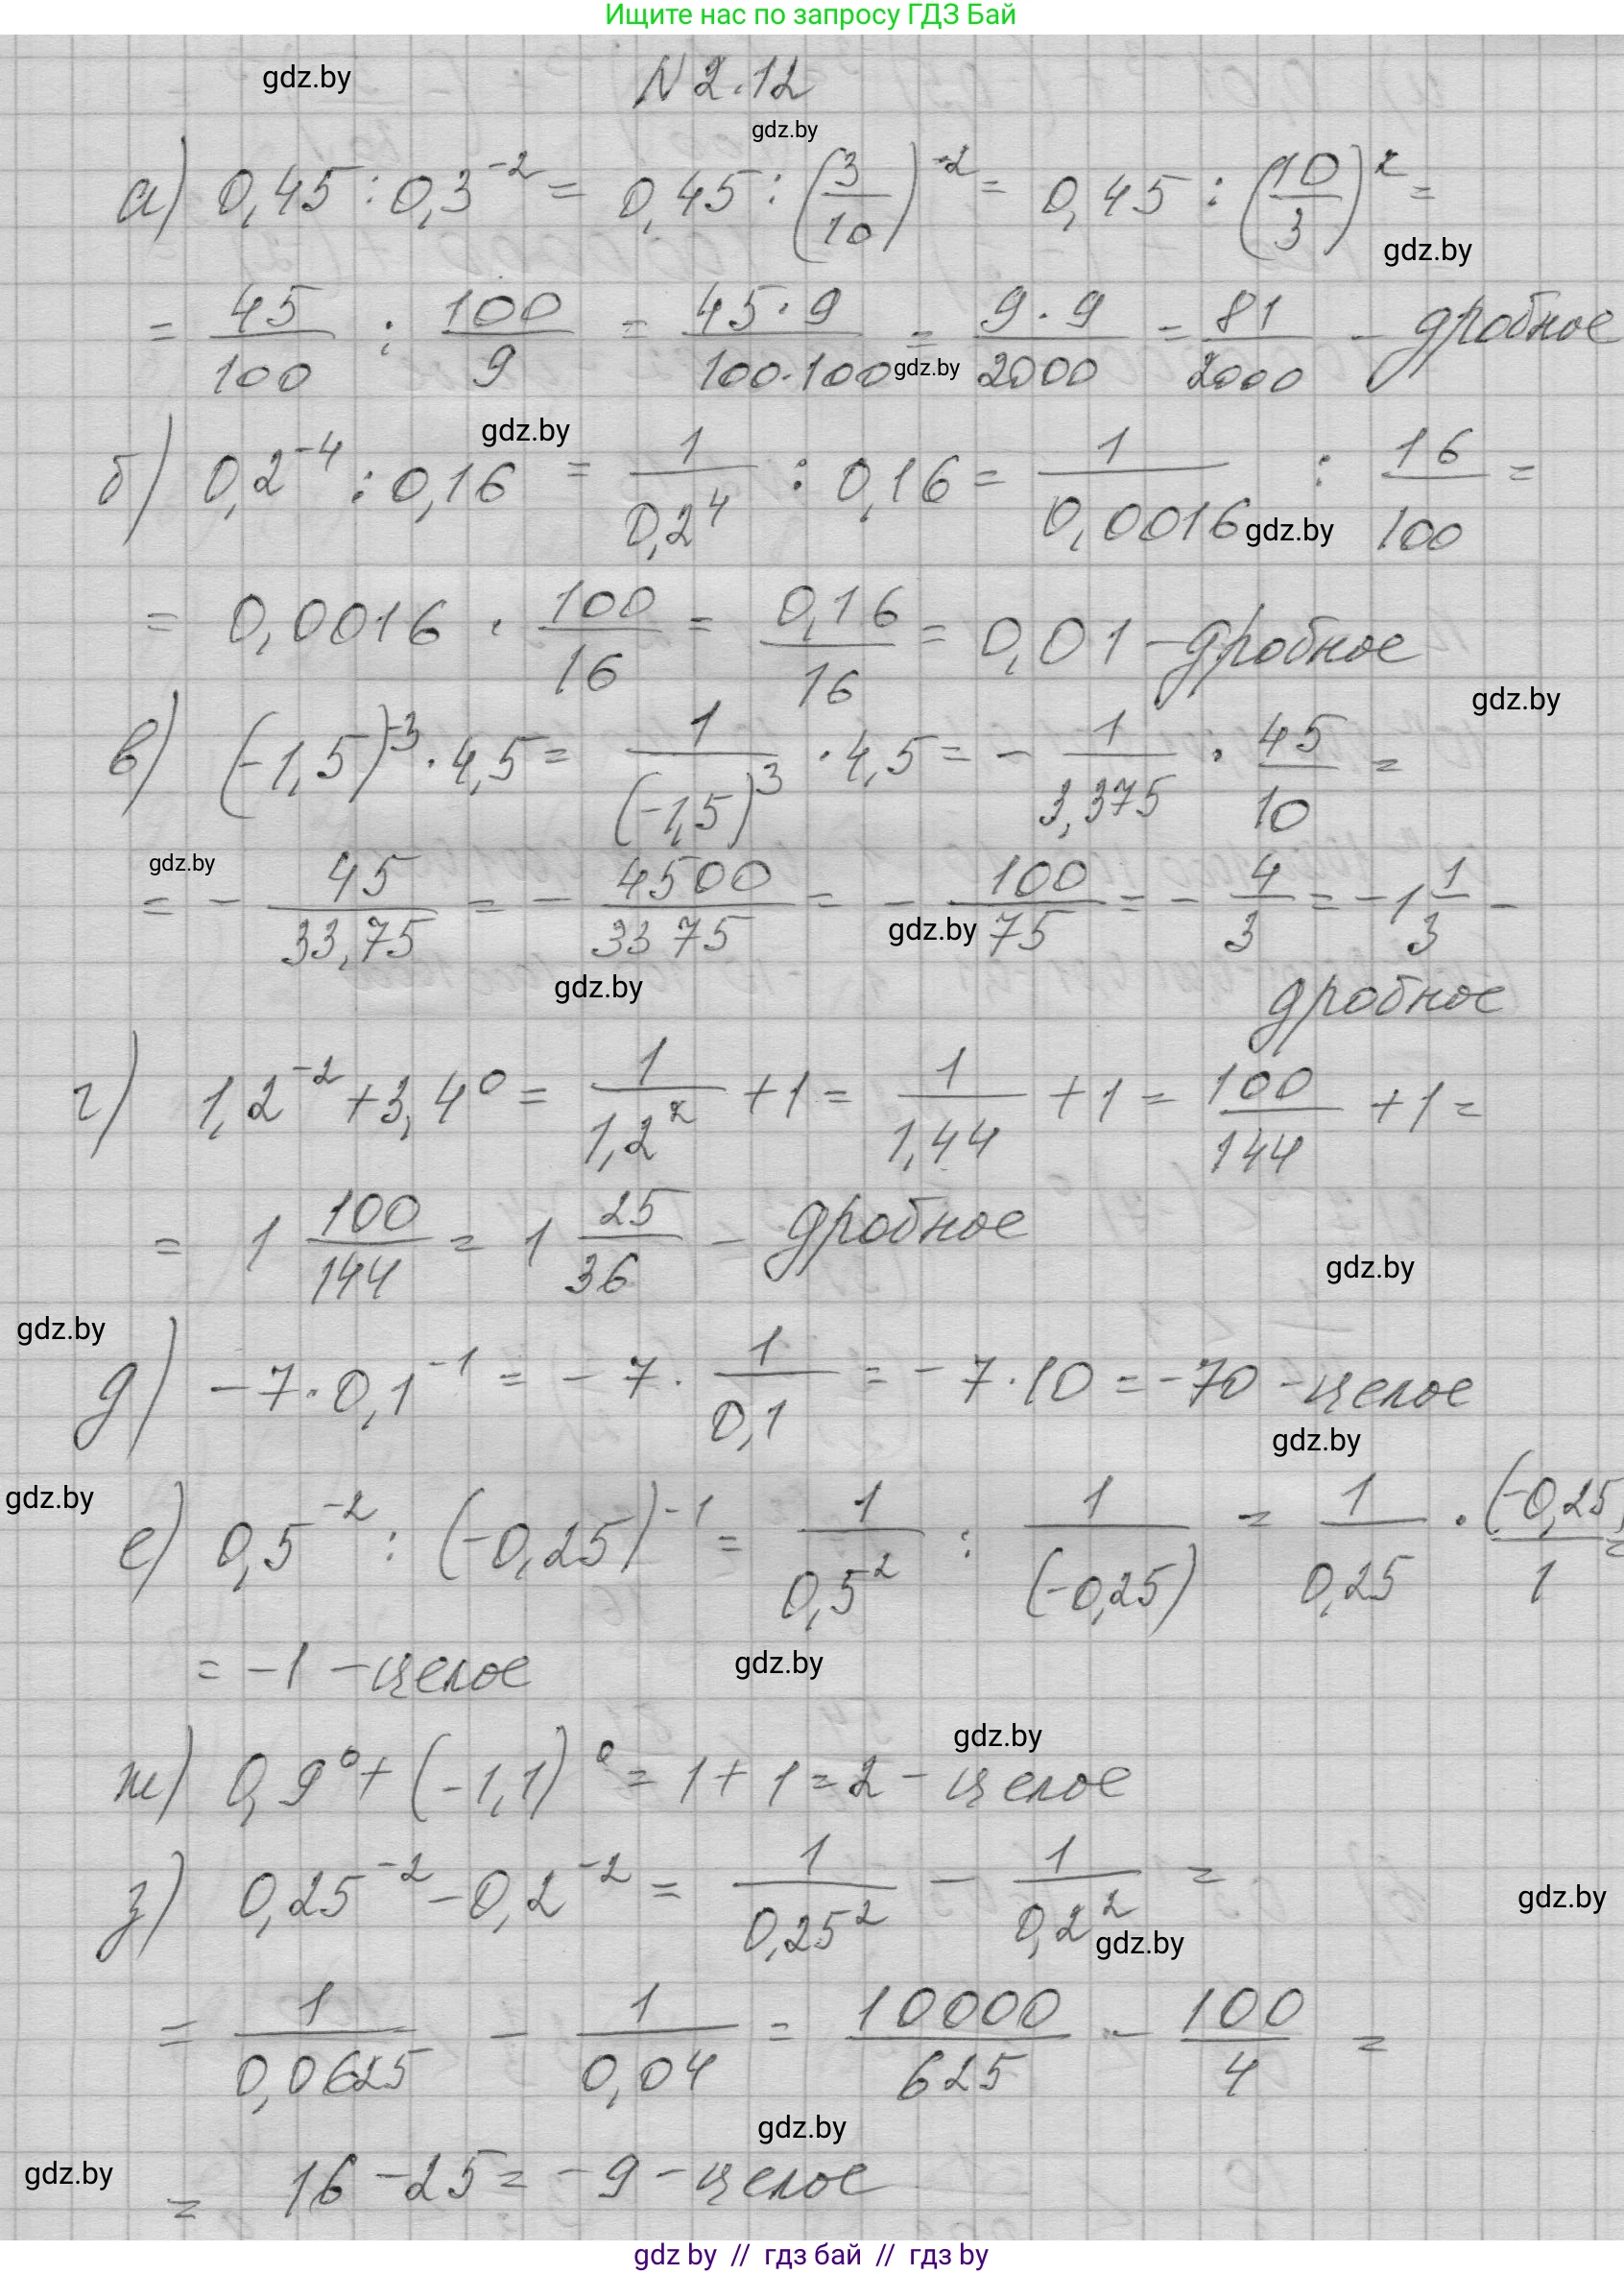 Ищите нас по запросу ГДЗ Бай
gdz.by
N 2.12
gdz.by
а) 0,45 : 0,3^-2 = 0,45 : (3/10)^-2 = 0,45 : (10/3)^2 =
gdz.by
= 45/100 : 100/9 = 45·9/100·100 = 9·9/2000 = 81/2000 - дробное
gdz.by
gdz.by
б) 0,2^-4 : 0,16 = 1/0,2^4 : 0,16 = 1/0,0016 : 16/100 =
gdz.by
= 0,0016 · 100/16 = 0,16/16 = 0,01 - дробное
gdz.by
в) (-1,5)^-3 · 4,5 = 1/(-1,5)^3 · 4,5 = - 1/3,375 · 45/10 =
gdz.by
= - 45/33,75 = - 4500/3375 = - 100/75 = - 4/3 = -1 1/3 -
gdz.by
gdz.by
дробное
г) 1,2^-2 + 3,4^0 = 1/1,2^2 + 1 = 1/1,44 + 1 = 100/144 + 1 =
= 1 100/144 = 1 25/36 - дробное
gdz.by
gdz.by
д) -7 · 0,1^-1 = -7 · 1/0,1 = -7 · 10 = -70 - целое
gdz.by
gdz.by
е) 0,5^-2 : (-0,25)^-1 = 1/0,5^2 : 1/(-0,25) = 1/0,25 · (-0,25)/1 =
= -1 - целое
gdz.by
gdz.by
ж) 0,9^0 + (-1,1)^0 = 1 + 1 = 2 - целое
з) 0,25^-2 - 0,2^-2 = 1/0,25^2 - 1/0,2^2 =
gdz.by
gdz.by
= 1/0,0625 - 1/0,04 = 10000/625 - 100/4 =
gdz.by
gdz.by
= 16 - 25 = -9 - целое
gdz by // гдз бай // гдз by